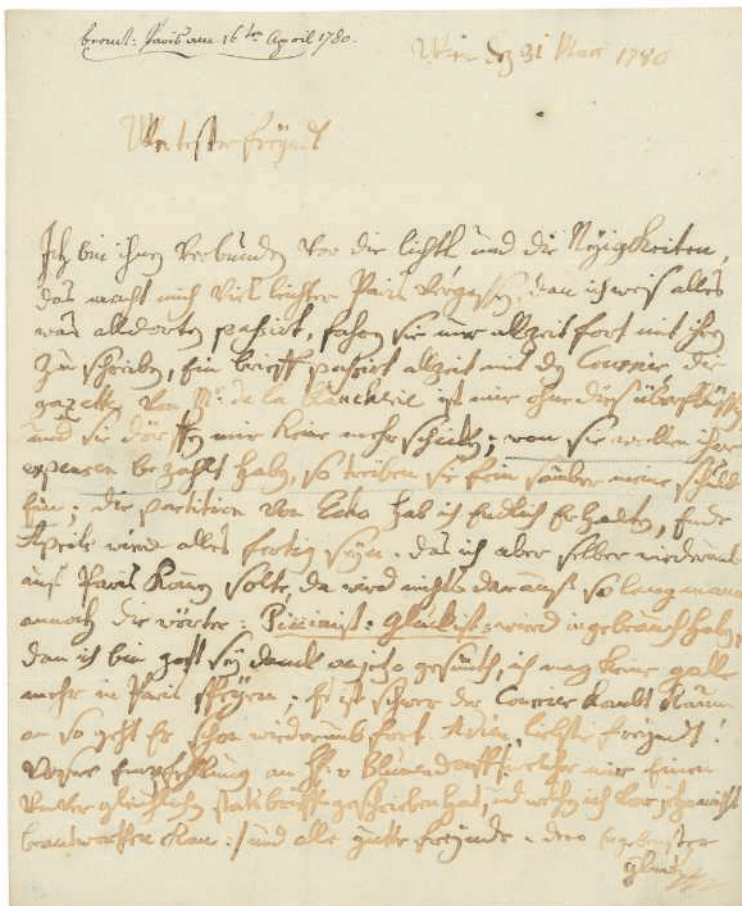 beant: Paris am 16ten April 1780.
Wien den 31 Mars 1780
Wertester freynd
Ich bin ihnen verbunden vor die lichtl und die Neyigkeiten,
das macht mich viel leichter Paris vergessen, dan ich weis alles
was alldorten passirt, fahren sie nur allzeit fort mit ihren
zu schreiben, Ein brieff passirt allzeit mit den Courrier, die
gazetten von Mr. de la Blancherie ist mir ohne dies überflüssig
und sie dörffen mir keine mehr schicken; wan sie wollen ihre
expensen bezahlt haben, so treiben sie fein sauber meine schulden
Ein; die partition von Echo hab ich Endlich Erhalten, Ende
Aprile wird alles fertig seyn. das ich aber selber wiederumb
auf Paris komen solte, da wird nichts darauss so lang mann
annoch die wörter: Piccinist: Gluckist: wird in gebrauch haben,
dan ich bin gott sey danck anjetzo gesundt, ich mag keine galle
mehr in Paris speyen; Er ist schwer der Courrier kombt kaum
an so geht Er schon wiederumb fort. Adieu, liebster freyndt!
Unsere Empfehlung an H: v Blumendorff, welcher mir Einen
unvergleichlichen brieff geschrieben hat, und welchen ich vor jetzo nicht
beantworthen kan:/ und alle gutte freynde. dero Ergebenster
Gluck